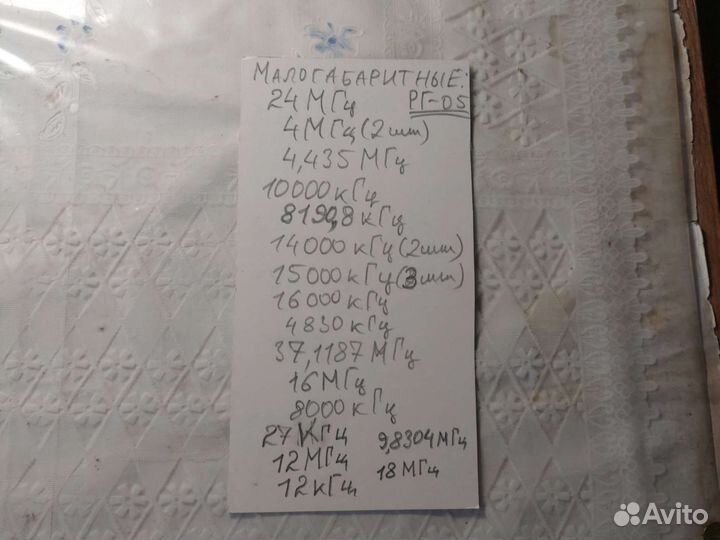 МАЛОГАБАРИТНЫЕ:
24 МГц РГ-05
4 МГц (2 шт)
4,435 МГц
10000 кГц
8190,8 кГц
14000 кГц (2 шт)
15000 кГц (3 шт)
16000 кГц
4830 кГц
37,1187 МГц
16 МГц
8000 кГц
27 КГц 9,8304 МГц
12 МГц 18 МГц
12 кГц
Avito